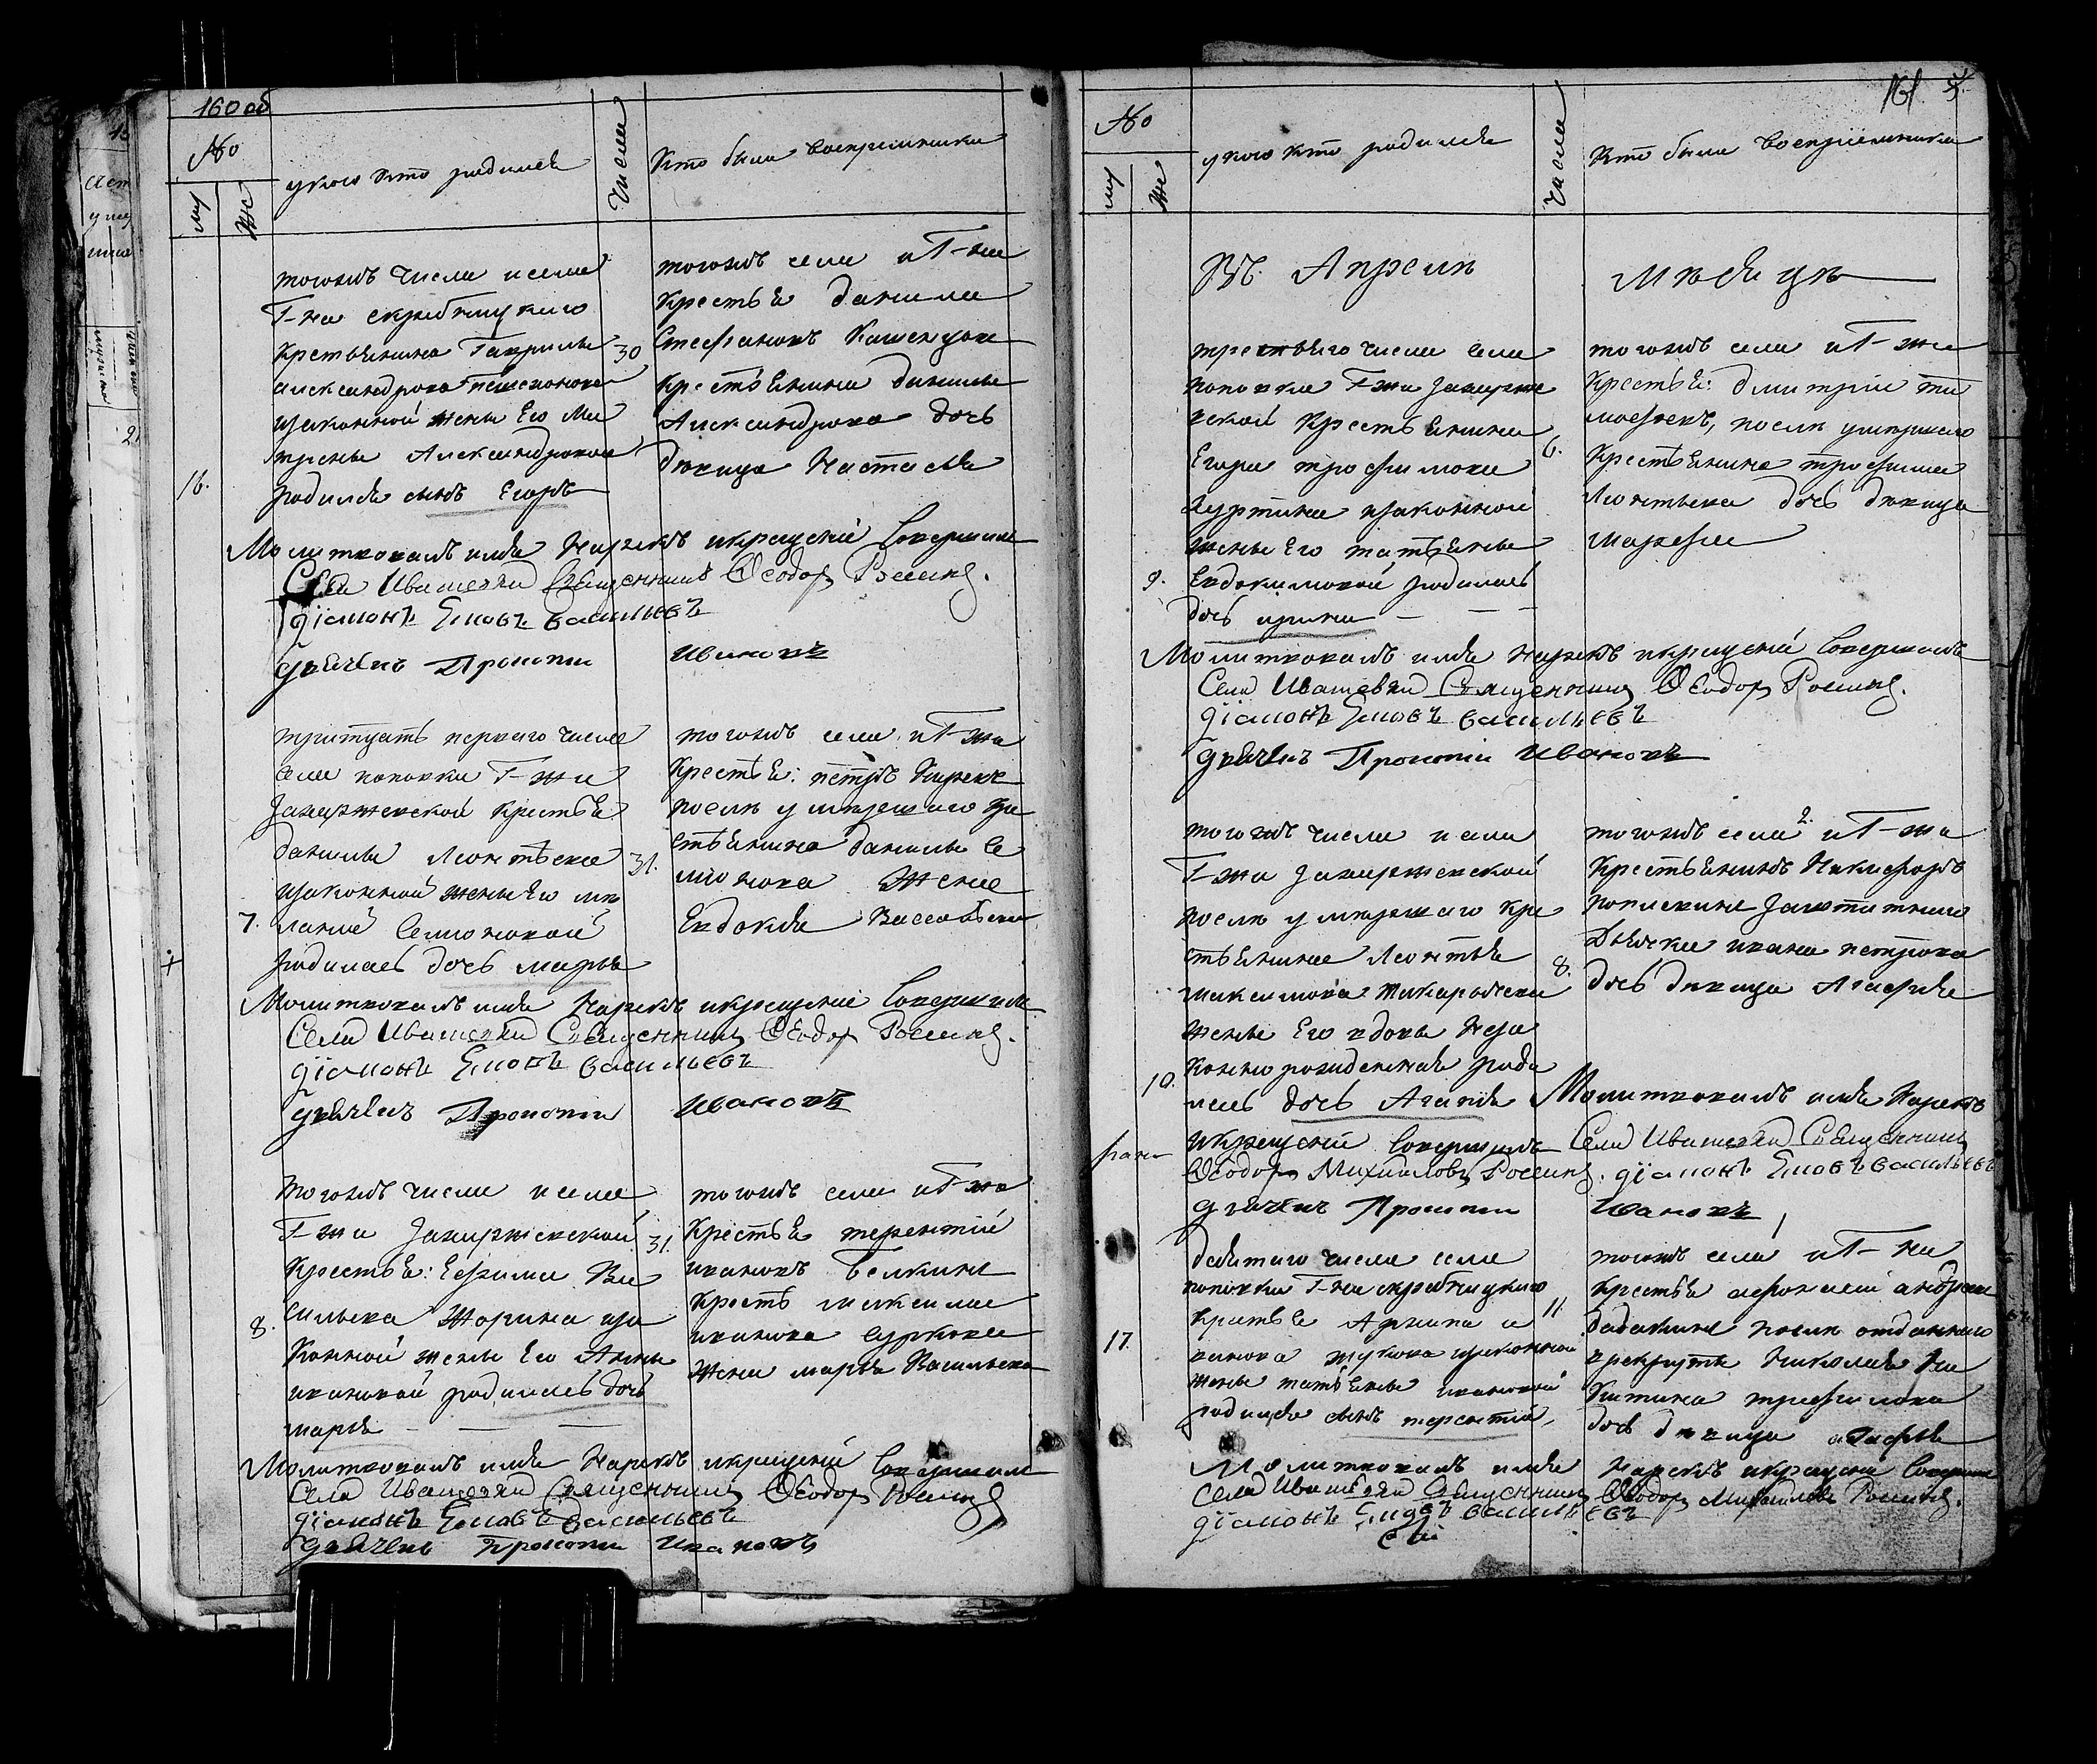 160 об
№
му
же
у кого кто родился
Числа
Кто были восприемники
тогожъ числа и села
Г-на
крестьянина Гаврилы
Александрова
законной жены его Ма
трены Александровой
16.
родился сынъ Егоръ
30
тогожъ села и Г-на
крестья данила
Стефановъ
крестьянина данилы
Александрова дочь
девица Настасья
Молитвовалъ имя Нарекъ и крещение Совершилъ
Села Ивашевки Священникъ Феодоръ Росинъ.
діаконъ Емовъ васильевъ
дьячекъ Прокопи Ивановъ
тритцать перваго числа
села поповки Г-жи
Захаржевской крестья
данилы Леонтьева
законной жены его ма
7.
ланьи Семионовой
родилась дочь марья
31.
тогожъ села и Г-жи
Крестья: петръ
после умершаго кре
стьянина данилы Се
мионова жена
Евдокия Васильева
Молитвовалъ имя Нарекъ и крещение Совершилъ
Села Ивашевки Священникъ Феодоръ Росинъ.
діаконъ Емовъ васильевъ
дьячекъ Прокопи Ивановъ
тогожъ числа и села
Г-жи Захаржевской
Крестья: Ефима Ва
8.
сильева Жорина за
конной жены его Анны
ивановой родилась дочь
марья
31.
тогожъ села и Г-жи
Крестья терентий
ивановъ Белкинъ
Кресть максима
иванова Суркова
жена марья Васильева
Молитвовалъ имя Нарекъ и крещение Совершилъ
Села Ивашевки Священникъ Феодоръ Росинъ
діаконъ Емовъ васильевъ
дьячекъ Прокопи Ивановъ
161
№
му
же
у кого кто родился
Числа
Кто были восприемники
Въ Апреле
месяце
третьяго числа села
поповки Г-жи Захарже
вской крестьянина
Егора трофимова
Куртина законной
жены его татьяны
9.
Евдокимовой родилась
дочь ирина
6.
тогожъ села и Г-жи
Крестья: дмитрий ти
мофеевъ, после умершаго
Крестьянина трофима
Леонтьева дочь девица
марфа
Молитвовалъ имя Нарекъ и крещение Совершилъ
Села Ивашевки Священникъ Феодоръ Росинъ.
діаконъ Емовъ васильевъ
дьячекъ Прокопи Ивановъ
тогожъ числа и села
Г-жи Захаржевской
после умершаго кре
стьянина Леонтья
максимова
жены его вдовы неза
конно рожденная роди
10.
лась дочь Агапия
8.
тогожъ села и Г-жи
Крестьянинъ Никифоръ
дьячка ивана петрова
дочь девица Агафия
Молитвовалъ имя Нарекъ
и крещение Совершилъ Села Ивашевки Священникъ
Феодоръ Михайловъ Росинъ. діаконъ Емовъ васильевъ
дьячекъ Прокопи Ивановъ
девятаго числа села
поповки Г-на
крестья Архипа и
17.
ванова Жукова законной
жены татьяны ивановой
родился сынъ терентий
11.
тогожъ села и Г-на
Крестья афонасий андреевъ
после отданнаго
в рекруты Николая Ни
китина трофимова
дочь девица агафья
Молитвовалъ имя Нарекъ и крещение Совершилъ
Села Ивашевки Священникъ Феодоръ Михайловъ Росинъ.
діаконъ Емовъ васильевъ